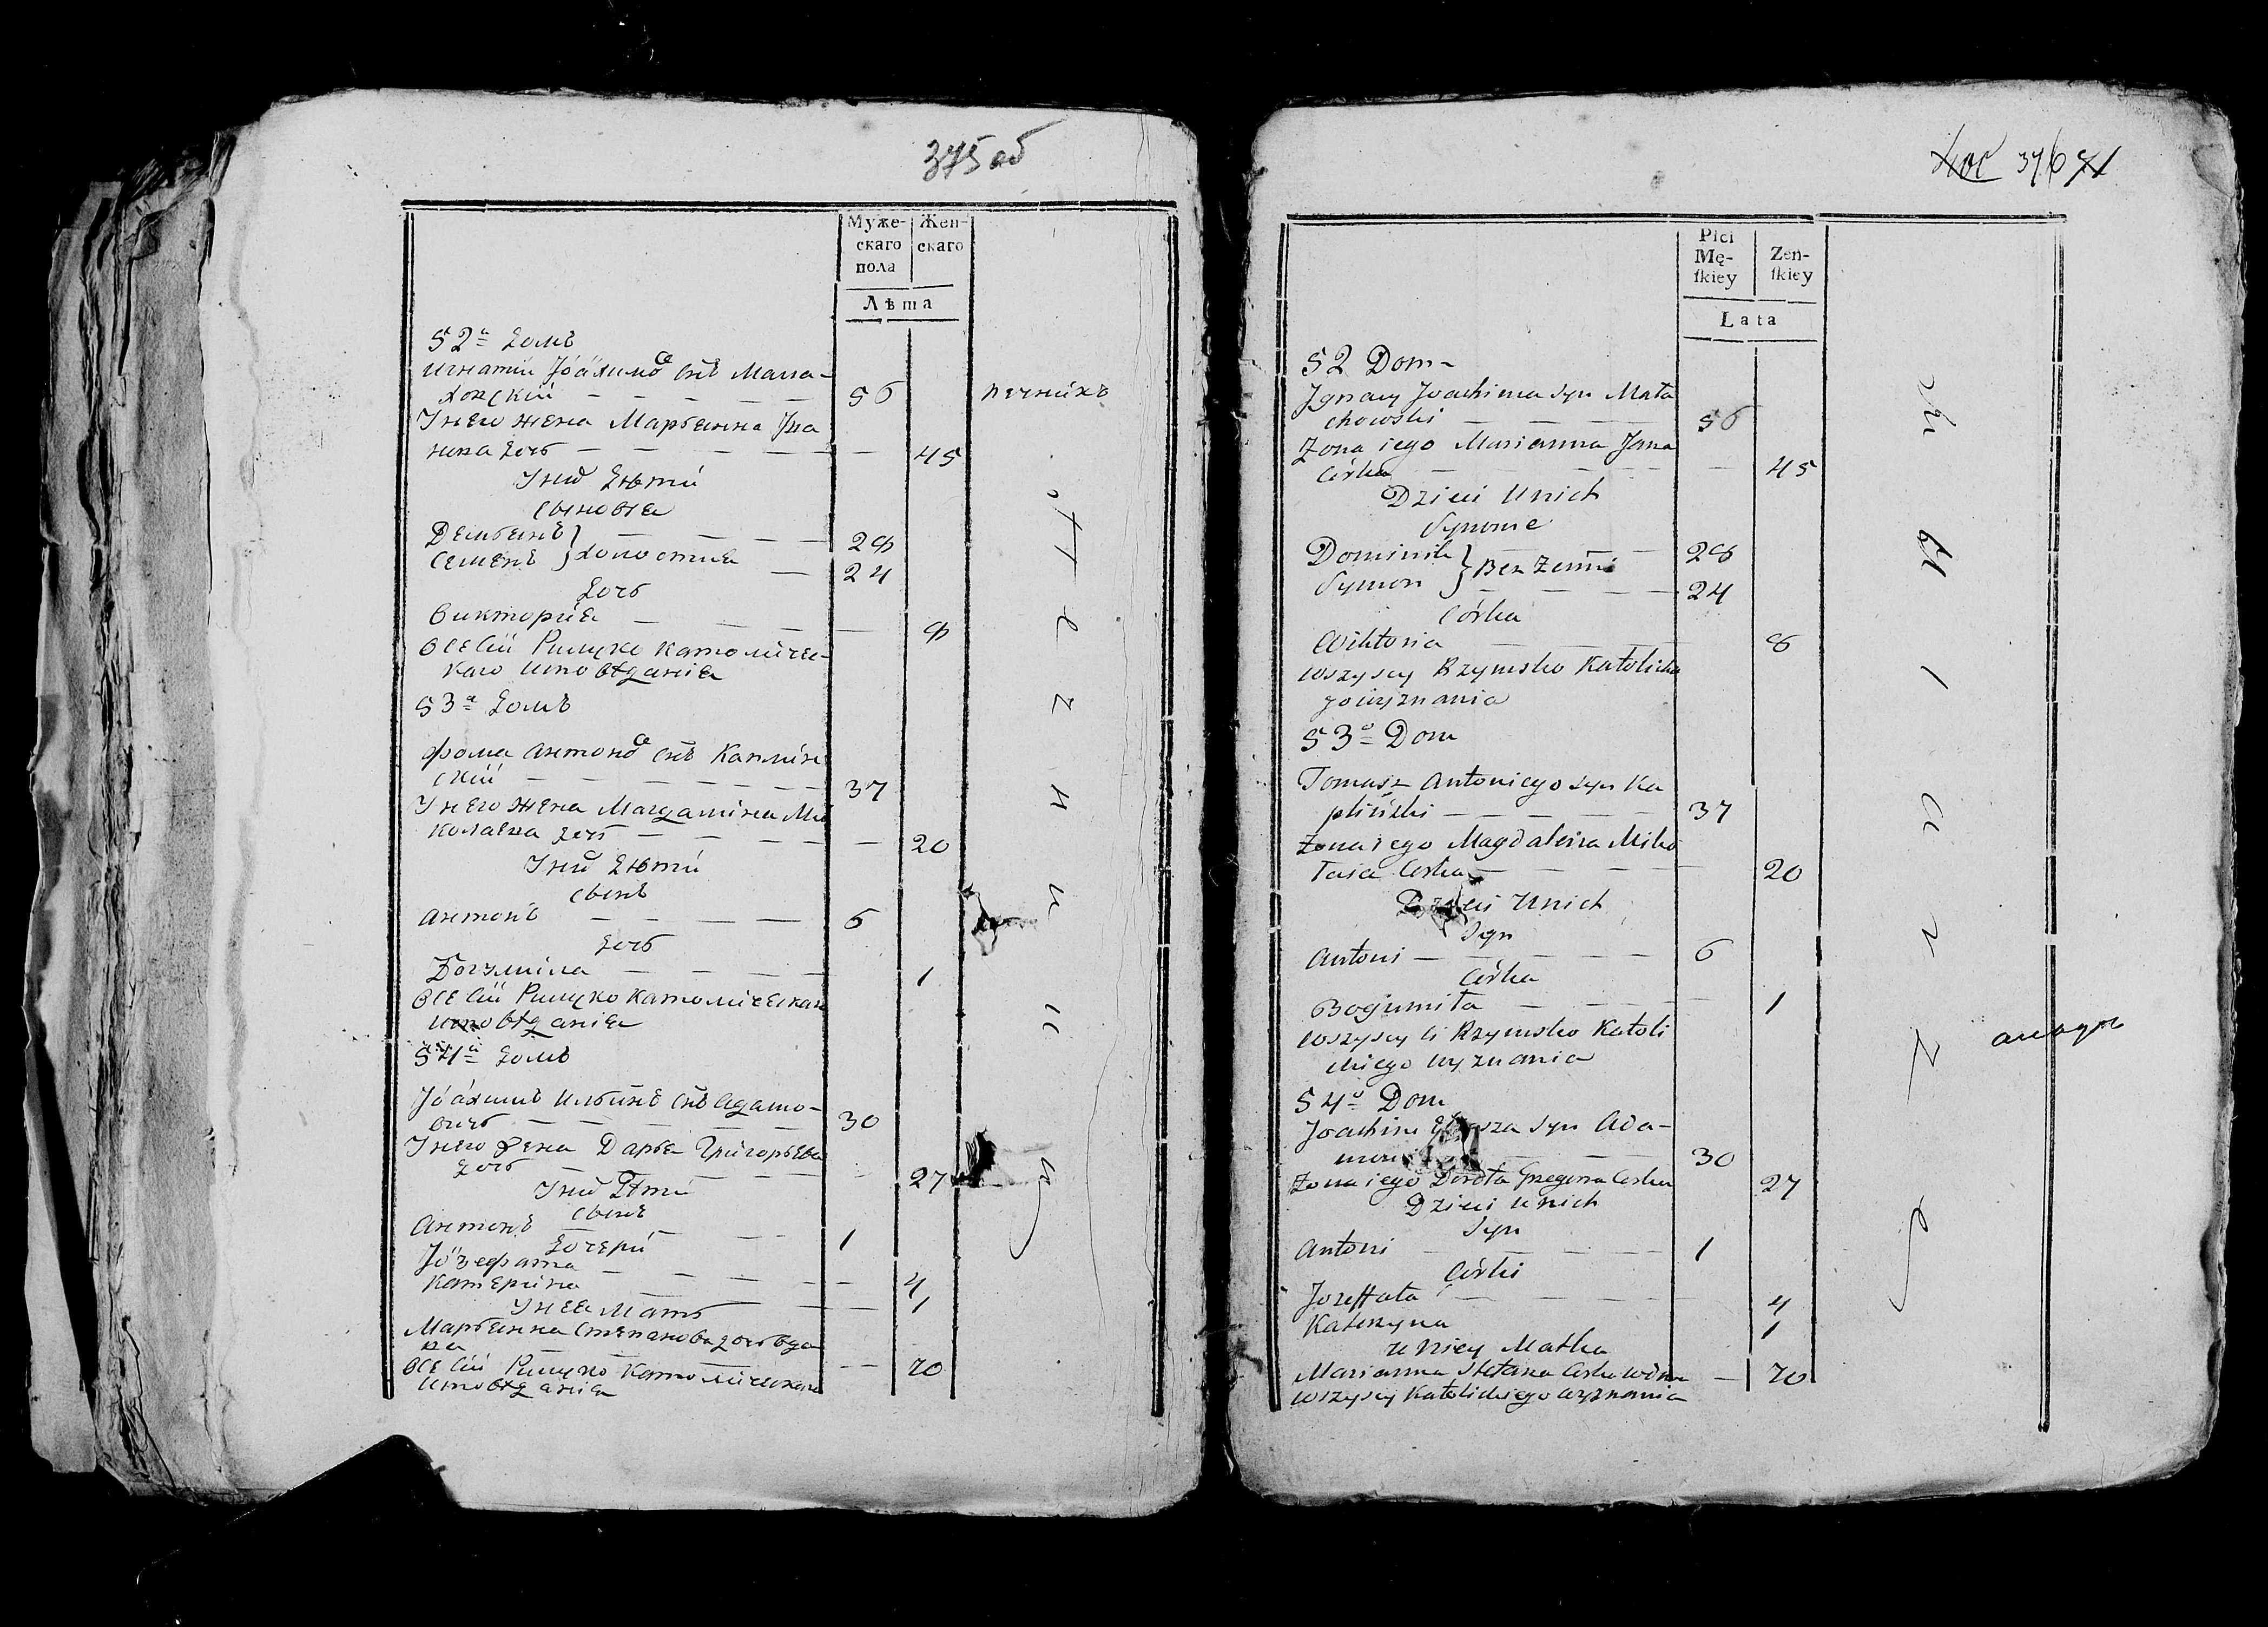 375 об
Муже-
скаго
пола
Жен-
скаго
Лѣта
52й Домъ
Игнатій Іоахимов снъ Мала-
ховскій — 56
печникъ
У него жена Марьянна Ива
нова дочь — 45
У них дѣти
сыновья
Демьянъ } — 28
Семенъ } холостые — 24
дочь
Викторія — 8
Все сіи Римско Католичес-
каго исповѣданія
53й Домъ
Фома Антонов снъ Каплин
скій — 37
У него жена Магдалина Ми
колаева дочь — 20
У них дѣти
сынъ
Антонъ — 6
дочь
Богумила — 1
Все сіи Римско Католическаго
исповѣданія
54й Домъ
Іоахимъ Ильинъ снъ Адамо-
вичъ — 30
У него жена Дарья Григорьева
дочь — 27
У них дѣти
сынъ
Антонъ — 1
дочери
Іозефата — 4
Катерина — 1
У нея мать
Марьянна Степанова дочь вдо
ва — 70
Все сіи Римско Католическаго
исповѣданія
376
Płci
Mę-
ſkiey
Zeń-
ſkiey
Lata
52 Dom
Jgnacy Joachima syn Mała
chowski — 56
Zona iego Marianna Jana
Córka — 45
Dzieci U nich
Synowie
Dominik } — 28
Symon } Bez Zenni — 24
Córka
Wiktoria — 8
wszyscy Rzymsko Katolickie
go wyznania
53o Dom
Tomasz Antoniego syn Ka
pliński — 37
Zona iego Magdalena Miko
łaia Corka — 20
Dzieci U nich
Syn
Antoni — 6
Córka
Bogumiła — 1
wszyscy ci Rzymsko Katoli
ckiego wyznania
54o Dom
Joachim syn Ada-
30
Zona iego Dorota Grzegorza Corka 27
Dzieci u nich
Syn
Antoni — 1
Córki
Jozeffata — 4
Katerzyna 1
u niey Matka
Marianna Stefana Corka wdowa — 70
wszyscy Katolickiego wyznania